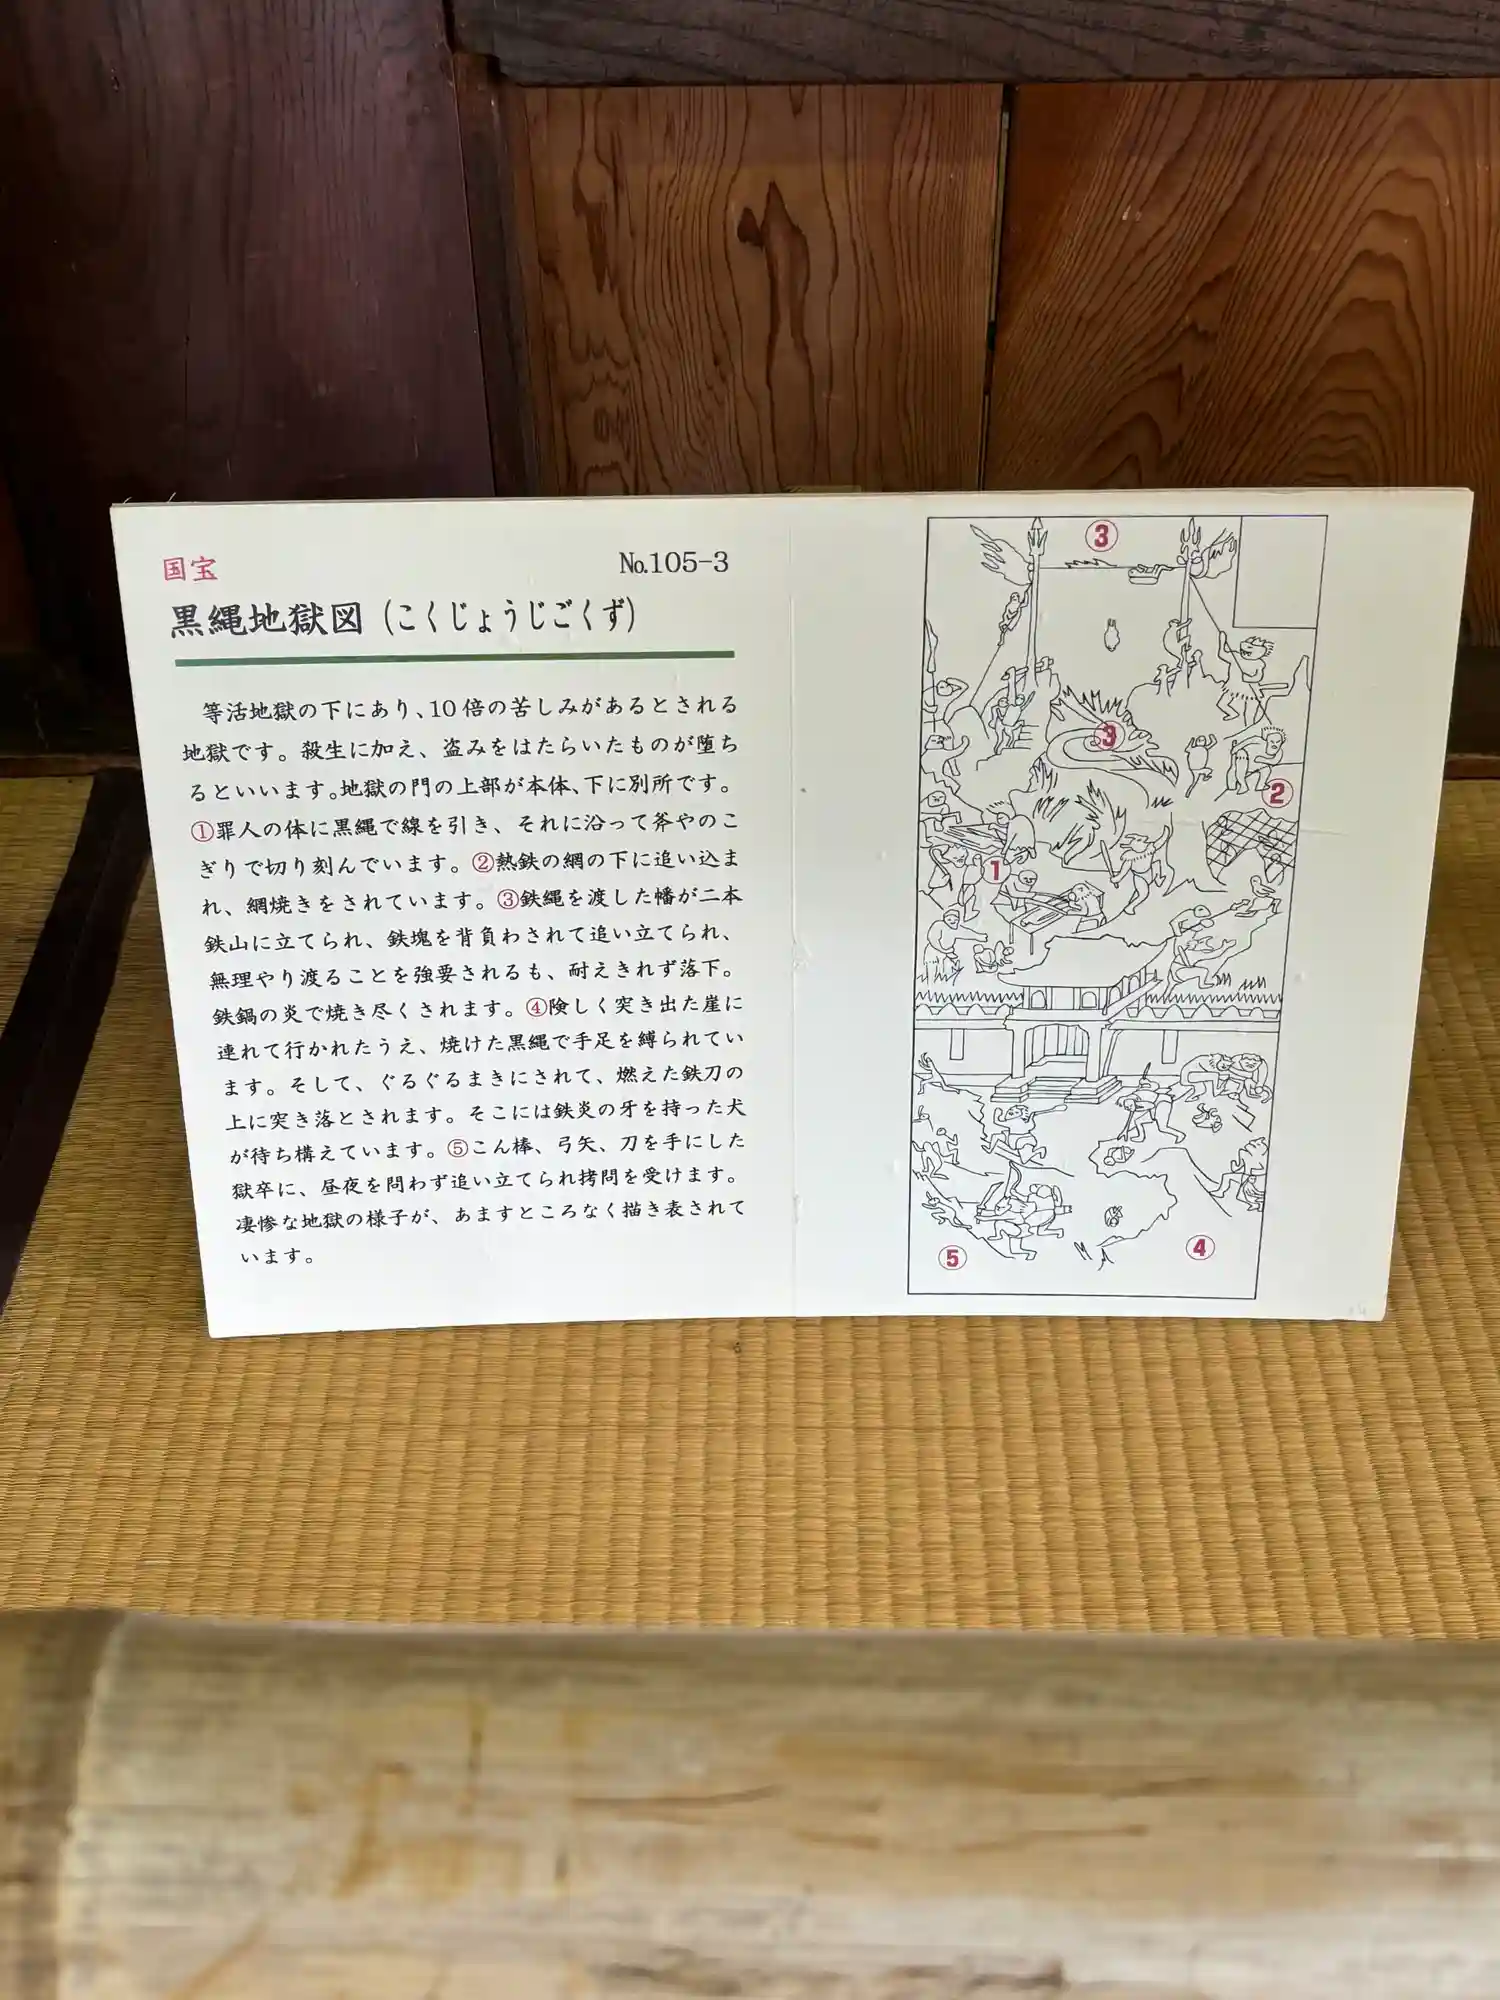 国宝
No.105-3
黒縄地獄図(こくじょうじごくず)
等活地獄の下にあり、10倍の苦しみがあるとされる
地獄です。殺生に加え、盗みをはたらいたものが堕ち
るといいます。地獄の門の上部が本体、下に別所です。
①罪人の体に黒縄で線を引き、それに沿って斧やのこ
ぎりで切り刻んでいます。②熱鉄の網の下に追い込ま
れ、網焼きをされています。③鉄縄を渡した幡が二本
鉄山に立てられ、鉄塊を背負わされて追い立てられ、
無理やり渡ることを強要されるも、耐えきれず落下。
鉄鍋の炎で焼き尽くされます。④険しく突き出た崖に
連れて行かれたうえ、焼けた黒縄で手足を縛られてい
ます。そして、ぐるぐるまきにされて、燃えた鉄刀の
上に突き落とされます。そこには鉄炎の牙を持った犬
が待ち構えています。⑤こん棒、弓矢、刀を手にした
獄卒に、昼夜を問わず追い立てられ拷問を受けます。
凄惨な地獄の様子が、あますところなく描き表されて
います。
③
③
②
①
④
⑤